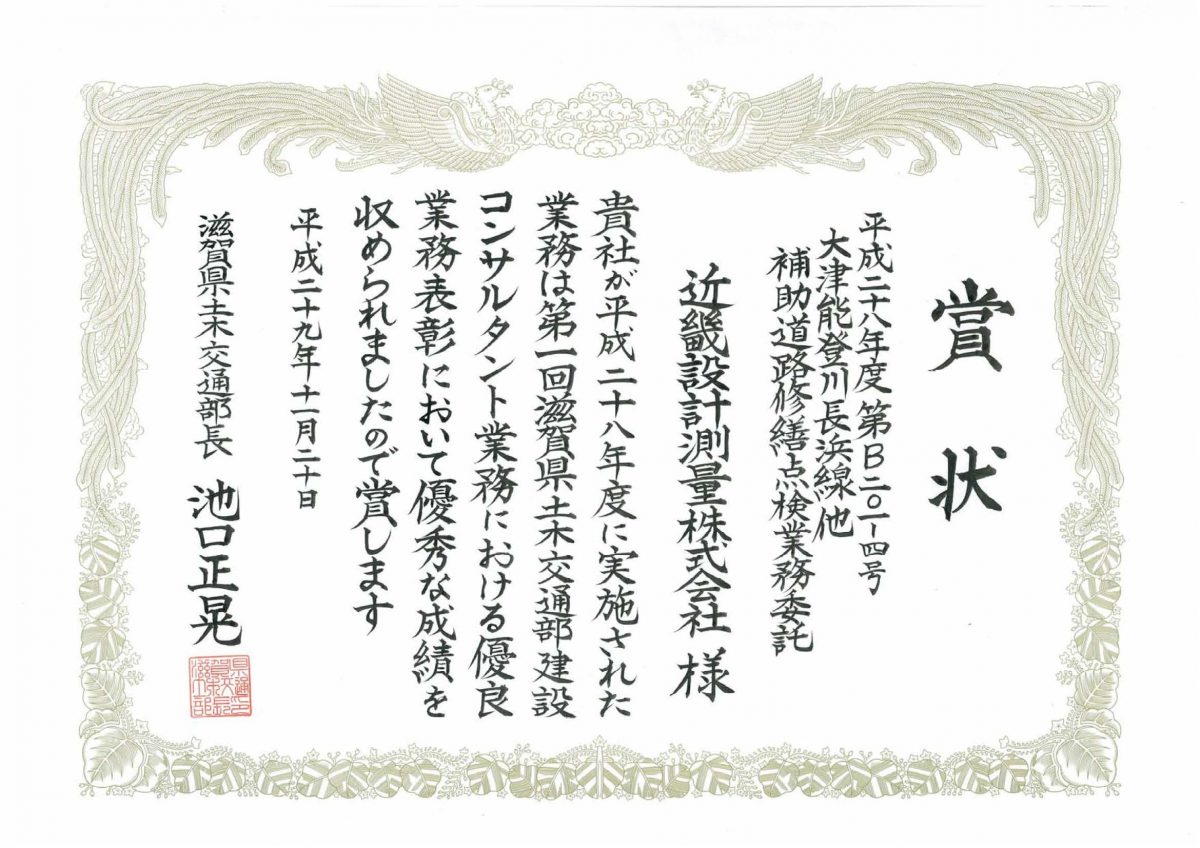 賞状
平成二十八年度第B二〇一-四号
大津能登川長浜線他
補助道路修繕点検業務委託
近畿設計測量株式会社 様
貴社が平成二十八年度に実施された
業務は第一回滋賀県土木交通部建設
コンサルタント業務における優良
業務表彰において優秀な成績を
収められましたので賞します
平成二十九年十一月二十日
滋賀県土木交通部長 池口正晃